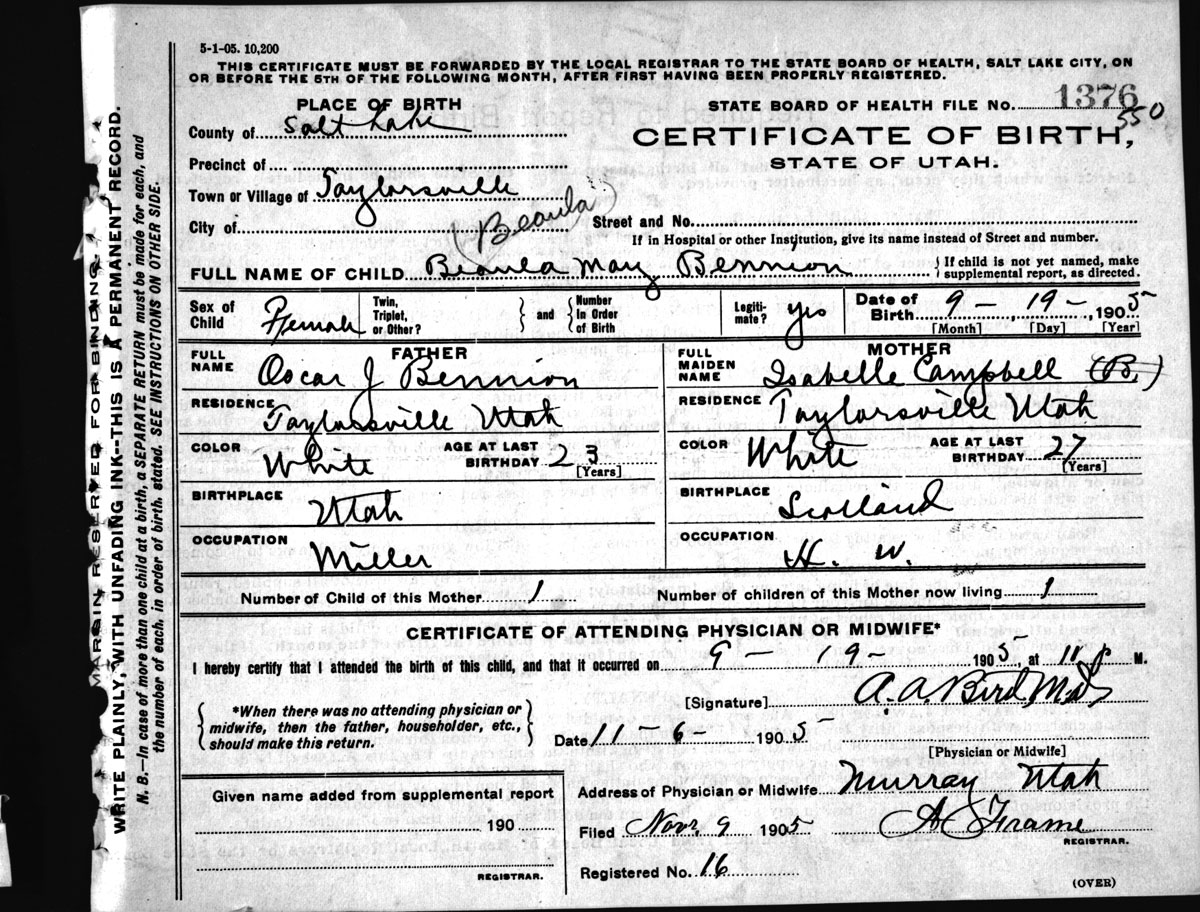 5-1-05. 10,200
THIS CERTIFICATE MUST BE FORWARDED BY THE LOCAL REGISTRAR TO THE STATE BOARD OF HEALTH, SALT LAKE CITY, ON
OR BEFORE THE 5TH OF THE FOLLOWING MONTH, AFTER FIRST HAVING BEEN PROPERLY REGISTERED.
PLACE OF BIRTH
STATE BOARD OF HEALTH FILE NO. 1376
550
County of Salt Lake
CERTIFICATE OF BIRTH,
Precinct of
STATE OF UTAH.
Town or Village of Taylorsville
(Beaula)
City of
Street and No.
If in Hospital or other Institution, give its name instead of Street and number.
FULL NAME OF CHILD Beaula May Bennion { If child is not yet named, make
supplemental report, as directed.
Sex of Child Female Twin, Triplet, or Other? } and { Number In Order of Birth Legiti- mate? yes Date of Birth 9 - 19 -, 1905
[Month] [Day] [Year]
FATHER MOTHER
FULL NAME Oscar J Bennion FULL MAIDEN NAME Isabelle Campbell (B.)
RESIDENCE Taylorsville Utah RESIDENCE Taylorsville Utah
COLOR White AGE AT LAST BIRTHDAY 23 [Years] COLOR White AGE AT LAST BIRTHDAY 27 [Years]
BIRTHPLACE Utah BIRTHPLACE Scotland
OCCUPATION Miller OCCUPATION H. W.
Number of Child of this Mother 1 Number of children of this Mother now living 1
CERTIFICATE OF ATTENDING PHYSICIAN OR MIDWIFE*
I hereby certify that I attended the birth of this child, and that it occurred on 9 - 19 - 1905, at 11 P M.
[Signature] A. A. Bird M.D.
{ *When there was no attending physician or
midwife, then the father, householder, etc.,
should make this return. }
Date 11 6 - 1905
[Physician or Midwife]
Given name added from supplemental report
Address of Physician or Midwife Murray Utah
190
Filed Nov. 9 1905 A Frame
REGISTRAR.
REGISTRAR.
Registered No. 16
(OVER)
MARGIN RESERVED FOR BINDING.
WRITE PLAINLY, WITH UNFADING INK--THIS IS A PERMANENT RECORD.
N. B.—In case of more than one child at a birth, a SEPARATE RETURN must be made for each, and
the number of each, in order of birth, stated. SEE INSTRUCTIONS ON OTHER SIDE.